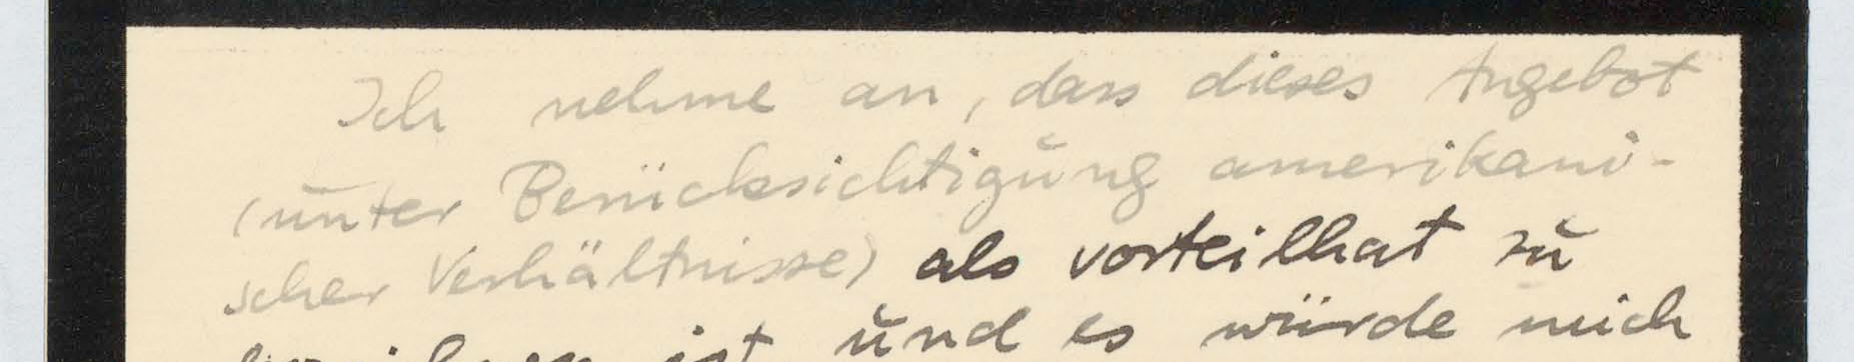 Ich nehme an, dass dieses Angebot
(unter Berücksichtigung amerikani-
scher Verhältnisse) als vorteilhat zu
ist und es würde mich